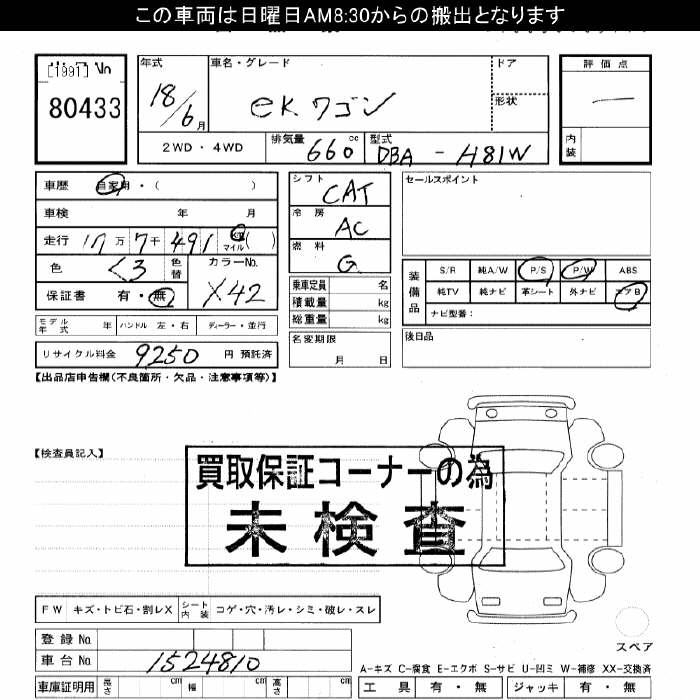 この車両は日曜日AM8:30からの搬出となります
[1991] No
80433
年式
18/6月
車名・グレード
eKワゴン
ドア
形状
評価点
内装
2WD・4WD
排気量
660cc
型式
DBA-H81W
車歴 自家用・( )
車検 年 月
走行 17万7千491 km マイル( )
色 くろ 色替
カラーNo. X42
保証書 有・無
モデル年式 年 ハンドル 左・右 ディーラー・並行
リサイクル料金 9250 円 預託済
シフト CAT
冷房 AC
燃料 G
乗車定員 名
積載量 kg
総重量 kg
名変期限
月 日
セールスポイント
装備品
S/R 純A/W P/S P/W ABS
純TV 純ナビ 革シート 外ナビ エアB
ナビ型番:
後日品
【出品店申告欄(不良箇所・欠品・注意事項等)】
【検査員記入】
買取保証コーナーの為
未検査
FW キズ・トビ石・割レX シート内装 コゲ・穴・汚レ・シミ・破レ・スレ
登録No.
車台No. 1524810
車庫証明用 長さ cm 幅 cm 高さ cm
スペア
A-キズ C-腐食 E-エクボ S-サビ U-凹ミ W-補修 XX-交換済
工具 有・無 ジャッキ 有・無